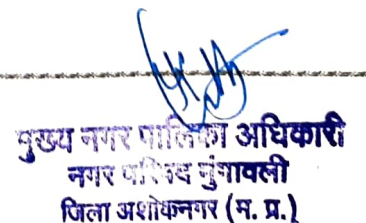 मुख्य नगर पालिका अधिकारी
नगर परिषद मुंगावली
जिला अशोकनगर (म. प्र.)